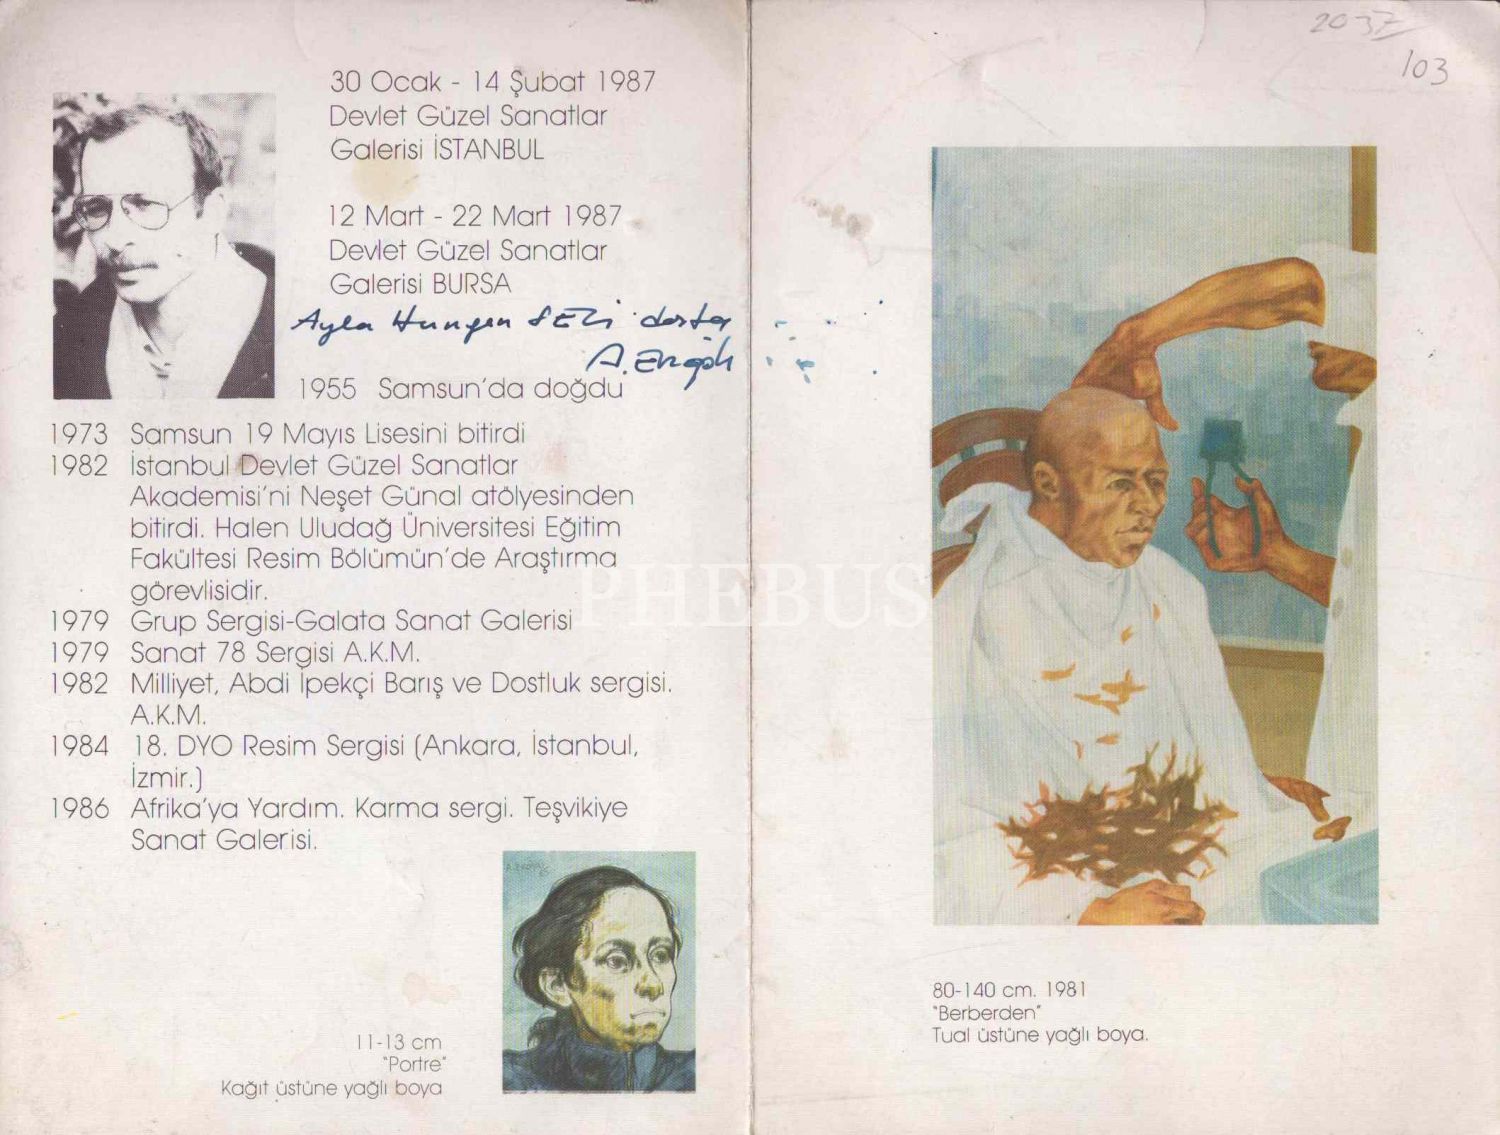 30 Ocak - 14 Şubat 1987
Devlet Güzel Sanatlar
Galerisi İSTANBUL
12 Mart - 22 Mart 1987
Devlet Güzel Sanatlar
Galerisi BURSA
Ayla
A.
1955 Samsun'da doğdu
1973 Samsun 19 Mayıs Lisesini bitirdi
1982 İstanbul Devlet Güzel Sanatlar
Akademisi'ni Neşet Günal atölyesinden
bitirdi. Halen Uludağ Üniversitesi Eğitim
Fakültesi Resim Bölümün'de Araştırma
görevlisidir.
1979 Grup Sergisi-Galata Sanat Galerisi
1979 Sanat 78 Sergisi A.K.M.
1982 Milliyet, Abdi İpekçi Barış ve Dostluk sergisi.
A.K.M.
1984 18. DYO Resim Sergisi (Ankara, İstanbul,
İzmir.)
1986 Afrika'ya Yardım. Karma sergi. Teşvikiye
Sanat Galerisi.
11-13 cm
"Portre"
Kağıt üstüne yağlı boya
PHEBUS
2037
103
80-140 cm. 1981
"Berberden"
Tual üstüne yağlı boya.